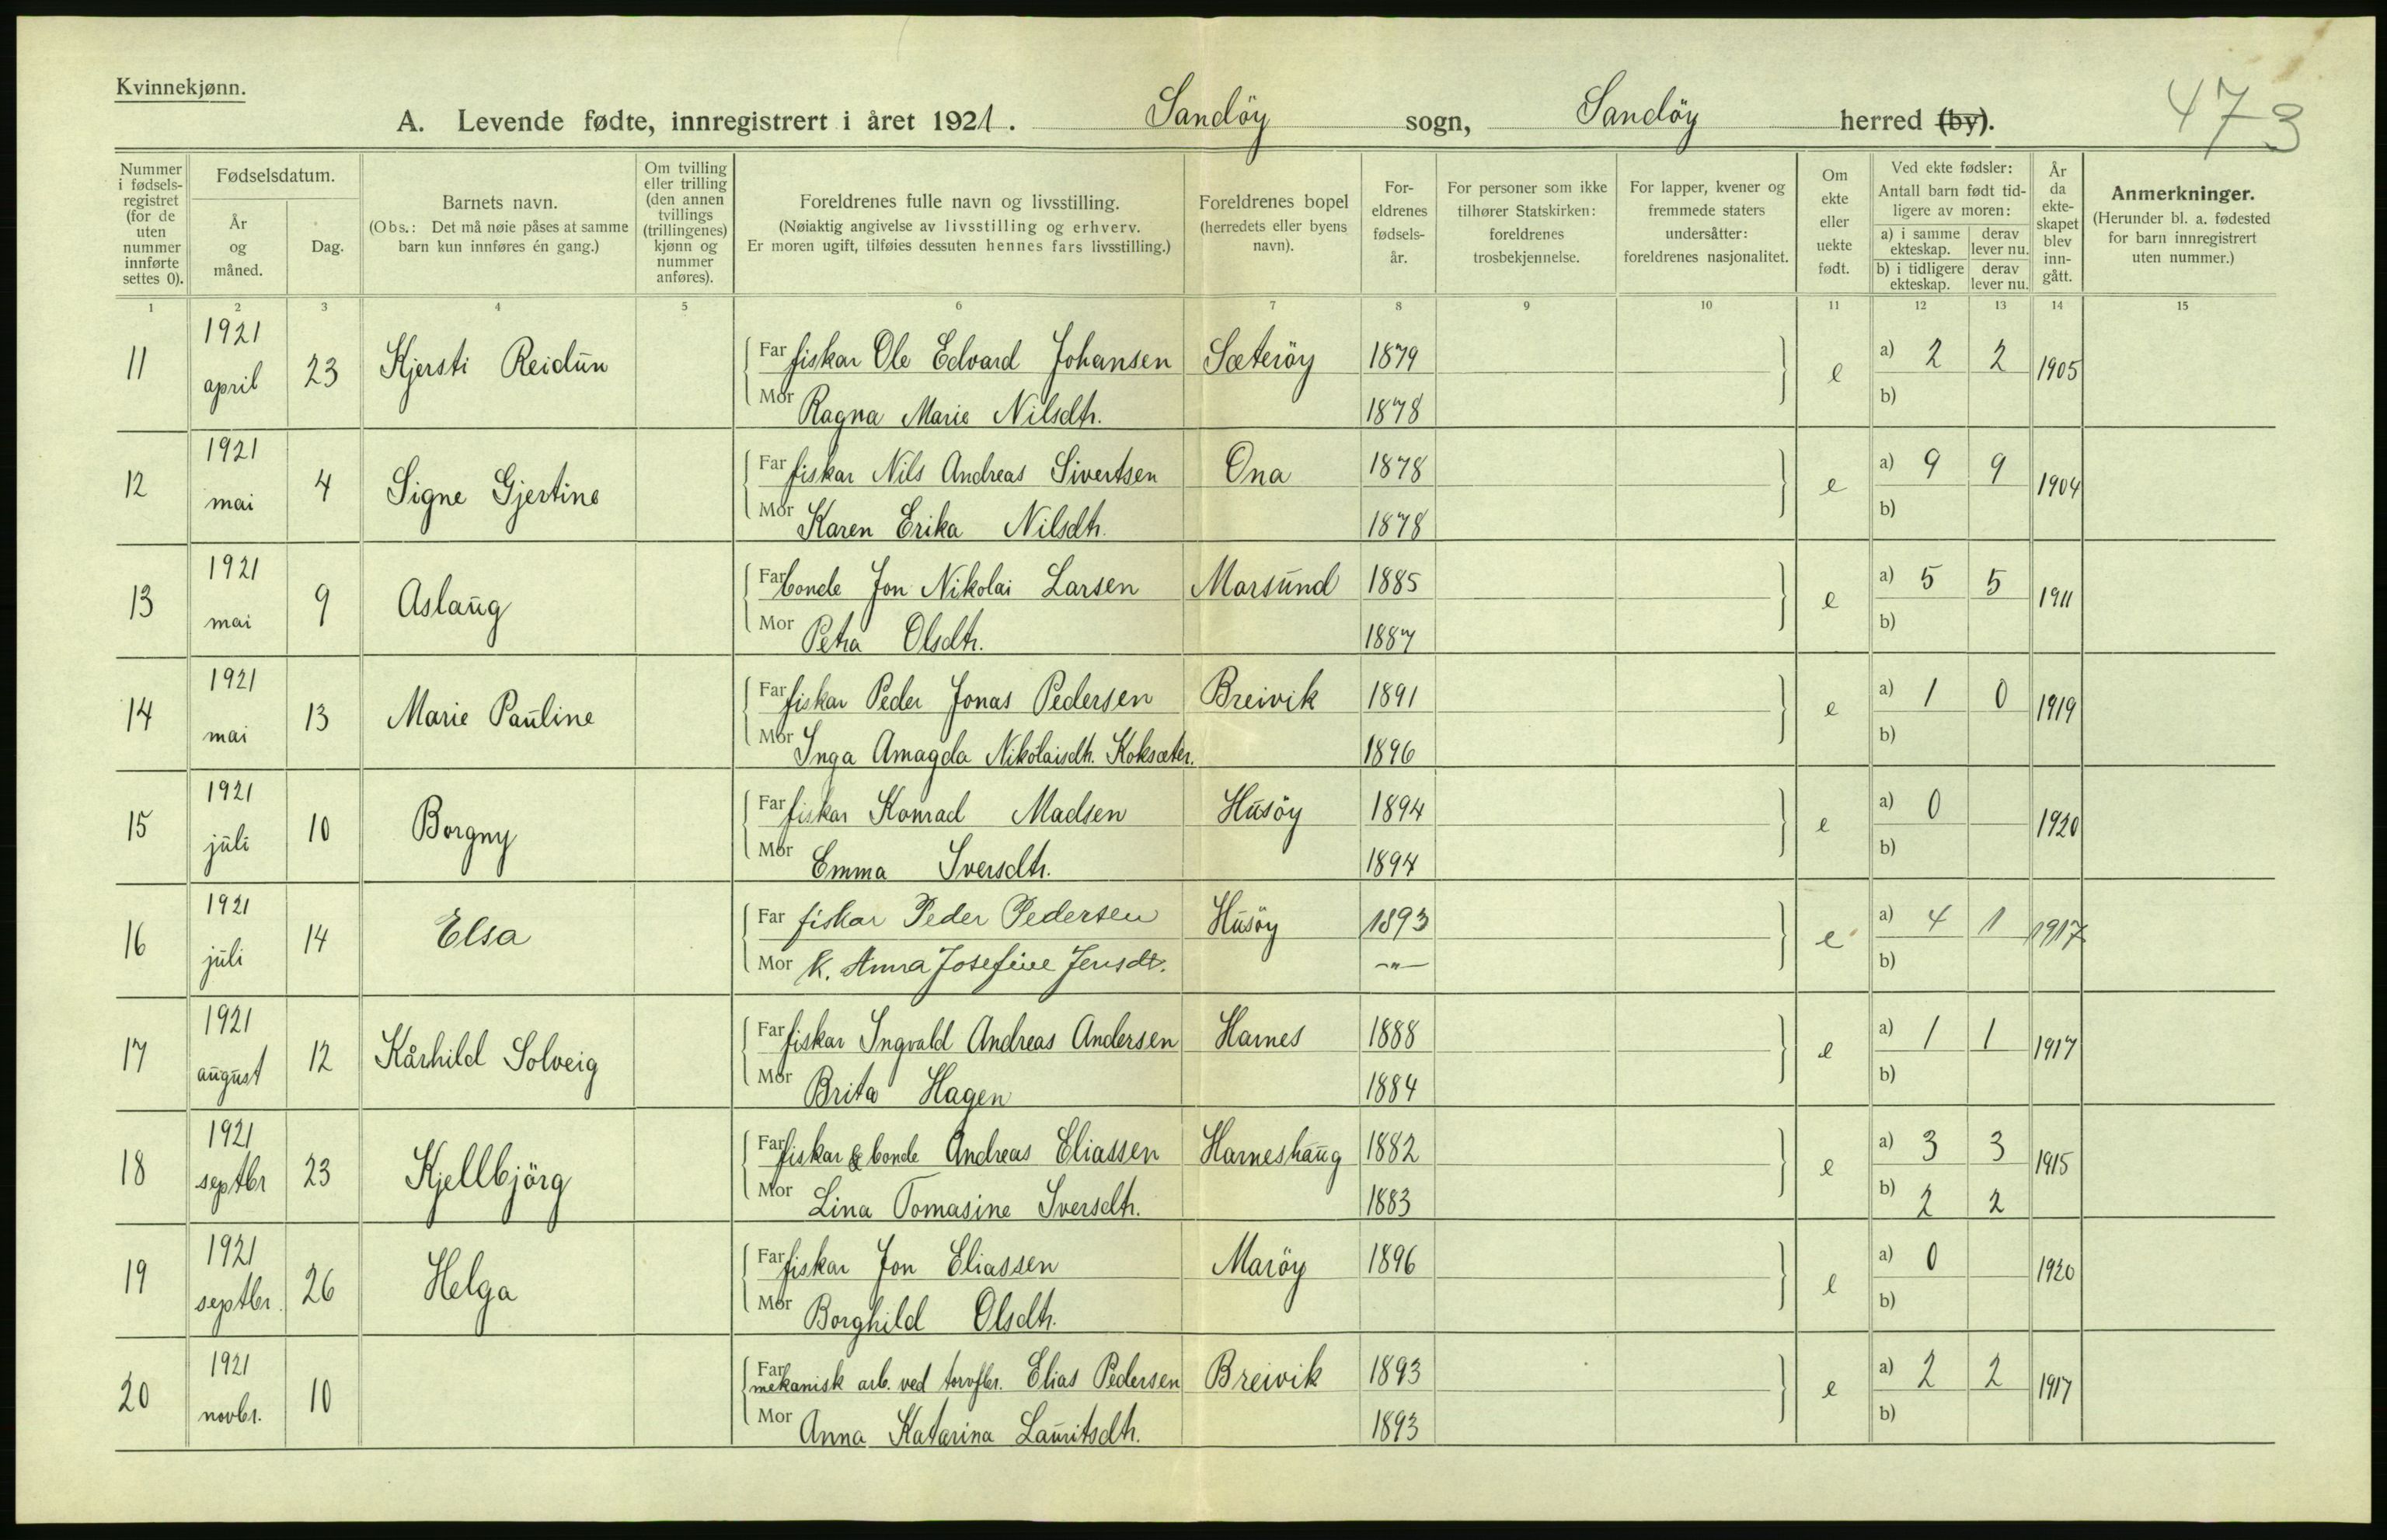 Kvinnekjønn.
A. Levende fødte, innregistrert i året 1921. Sandöy sogn, Sandöy herred (by).
473
Nummer i fødsels-registret (for de uten nummer innførte settes 0).
Fødselsdatum.
År og måned.
Dag.
Barnets navn.
(Obs.: Det må nøie påses at samme barn kun innføres én gang.)
Om tvilling eller trilling (den annen tvillings (trillingenes) kjønn og nummer anføres).
Foreldrenes fulle navn og livsstilling.
(Nøiaktig angivelse av livsstilling og erhverv.
Er moren ugift, tilføies dessuten hennes fars livsstilling.)
Foreldrenes bopel (herredets eller byens navn).
For-eldrenes fødsels-år.
For personer som ikke tilhører Statskirken: foreldrenes trosbekjennelse.
For lapper, kvener og fremmede staters undersåtter: foreldrenes nasjonalitet.
Om ekte eller uekte født.
Ved ekte fødsler:
Antall barn født tid-ligere av moren:
a) i samme ekteskap. derav lever nu.
b) i tidligere ekteskap. derav lever nu.
År da ekte-skapet blev inn-gått.
Anmerkninger.
(Herunder bl. a. fødested for barn innregistrert uten nummer.)
1 2 3 4 5 6 7 8 9 10 11 12 13 14 15
11 1921 april 23 Kjersti Reidun Far fiskar Ole Edvard Johansen Sæteröy 1879 e a) 2 2 1905
Mor Ragna Marie Nilsdtr. 1878 b)
12 1921 mai 4 Signe Gjertine Far fiskar Nils Andreas Sivertsen Ona 1878 e a) 9 9 1904
Mor Karen Erika Nilsdtr. 1878 b)
13 1921 mai 9 Aslaug Far bonde Jon Nikolai Larsen Marsund 1885 e a) 5 5 1911
Mor Petra Olsdtr. 1887 b)
14 1921 mai 13 Marie Pauline Far fiskar Peder Jonas Pedersen Breivik 1891 e a) 1 0 1919
Mor Inga Amagda Nikolaisdtr. Koksæter. 1896 b)
15 1921 juli 10 Borgny Far fiskar Konrad Madsen Husöy 1894 e a) 0 1920
Mor Emma Iversdtr. 1894 b)
16 1921 juli 14 Elsa Far fiskar Peder Pedersen Husöy 1893 e a) 4 1 1917
Mor K. Anna Josefine Jensdt. —"— b)
17 1921 august 12 Kårhild Solveig Far fiskar Ingvald Andreas Andersen Harnes 1888 e a) 1 1 1917
Mor Brita Hagen 1884 b)
18 1921 septbr 23 Kjellbjörg Far fiskar & bonde Andreas Eliassen Harneshaug 1882 e a) 3 3 1915
Mor Lina Tomasine Iversdtr. 1883 b) 2 2
19 1921 septbr. 26 Helga Far fiskar Jon Eliassen Maröy 1896 e a) 0 1920
Mor Borghild Olsdtr. b)
20 1921 novbr. 10 Far mekanisk arb. ved torvfbr. Elias Pedersen Breivik 1893 e a) 2 2 1917
Mor Anna Katarina Lauritsdtr. 1893 b)